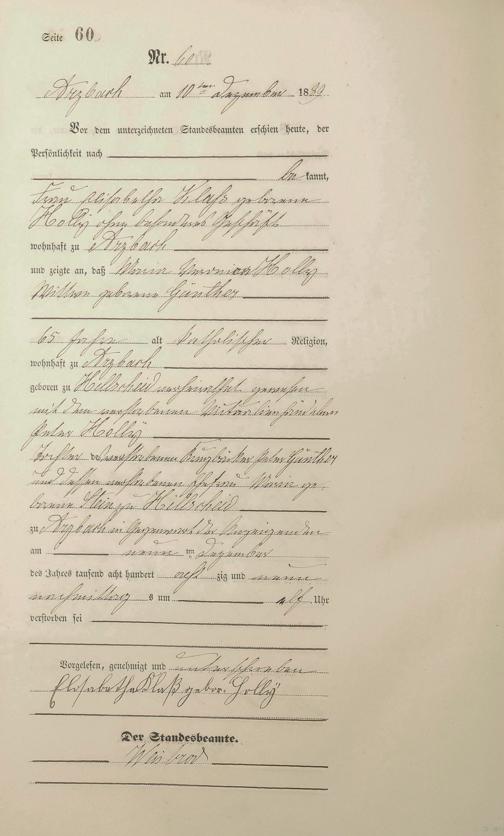 Seite 60
Nr. 60
Arzbach am 10ten Dezember 1889
Vor dem unterzeichneten Standesbeamten erschien heute, der
Persönlichkeit nach
be kannt,
Frau Elisabetha Klaß geborene
Holly ohne besonderes Geschäft
wohnhaft zu Arzbach
und zeigte an, daß Maria Veronica Holly
Wittwe geborene Günther
65 Jahre alt katholischer Religion,
wohnhaft zu Arzbach
geboren zu Hillscheid verheirathet gewesen
mit dem verstorbenen Victualienhändler
Peter Holly
Tochter des verstorbenen Peter Günther
und dessen verstorbenen Ehefrau Maria ge-
borene Stein zu Hillscheid
zu Arzbach in Gegenwart der Anzeigenden
am neun ten Dezember
des Jahres tausend acht hundert acht zig und neun
nachmittag s um elf Uhr
verstorben sei
Vorgelesen, genehmigt und unterschrieben
Elisabetha Klaß gebor. Holly
Der Standesbeamte.
Weisbrod